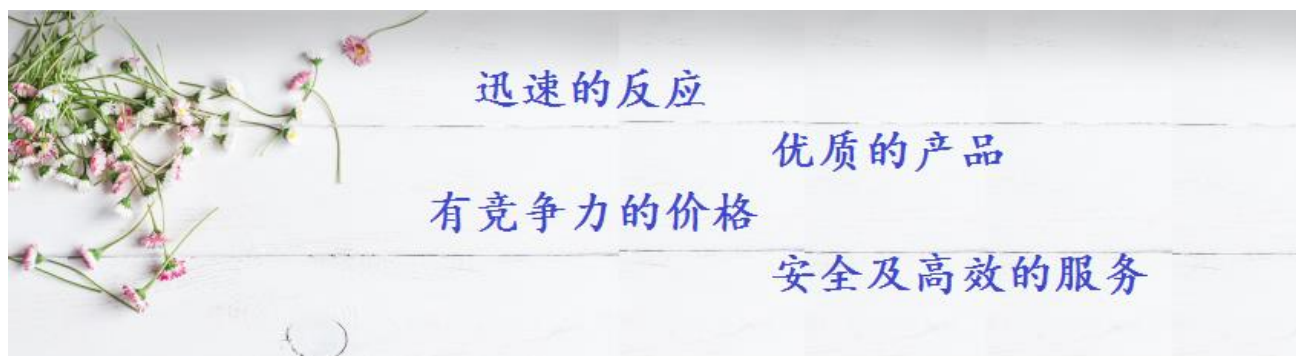 迅速的反应
优质的产品
有竞争力的价格
安全及高效的服务